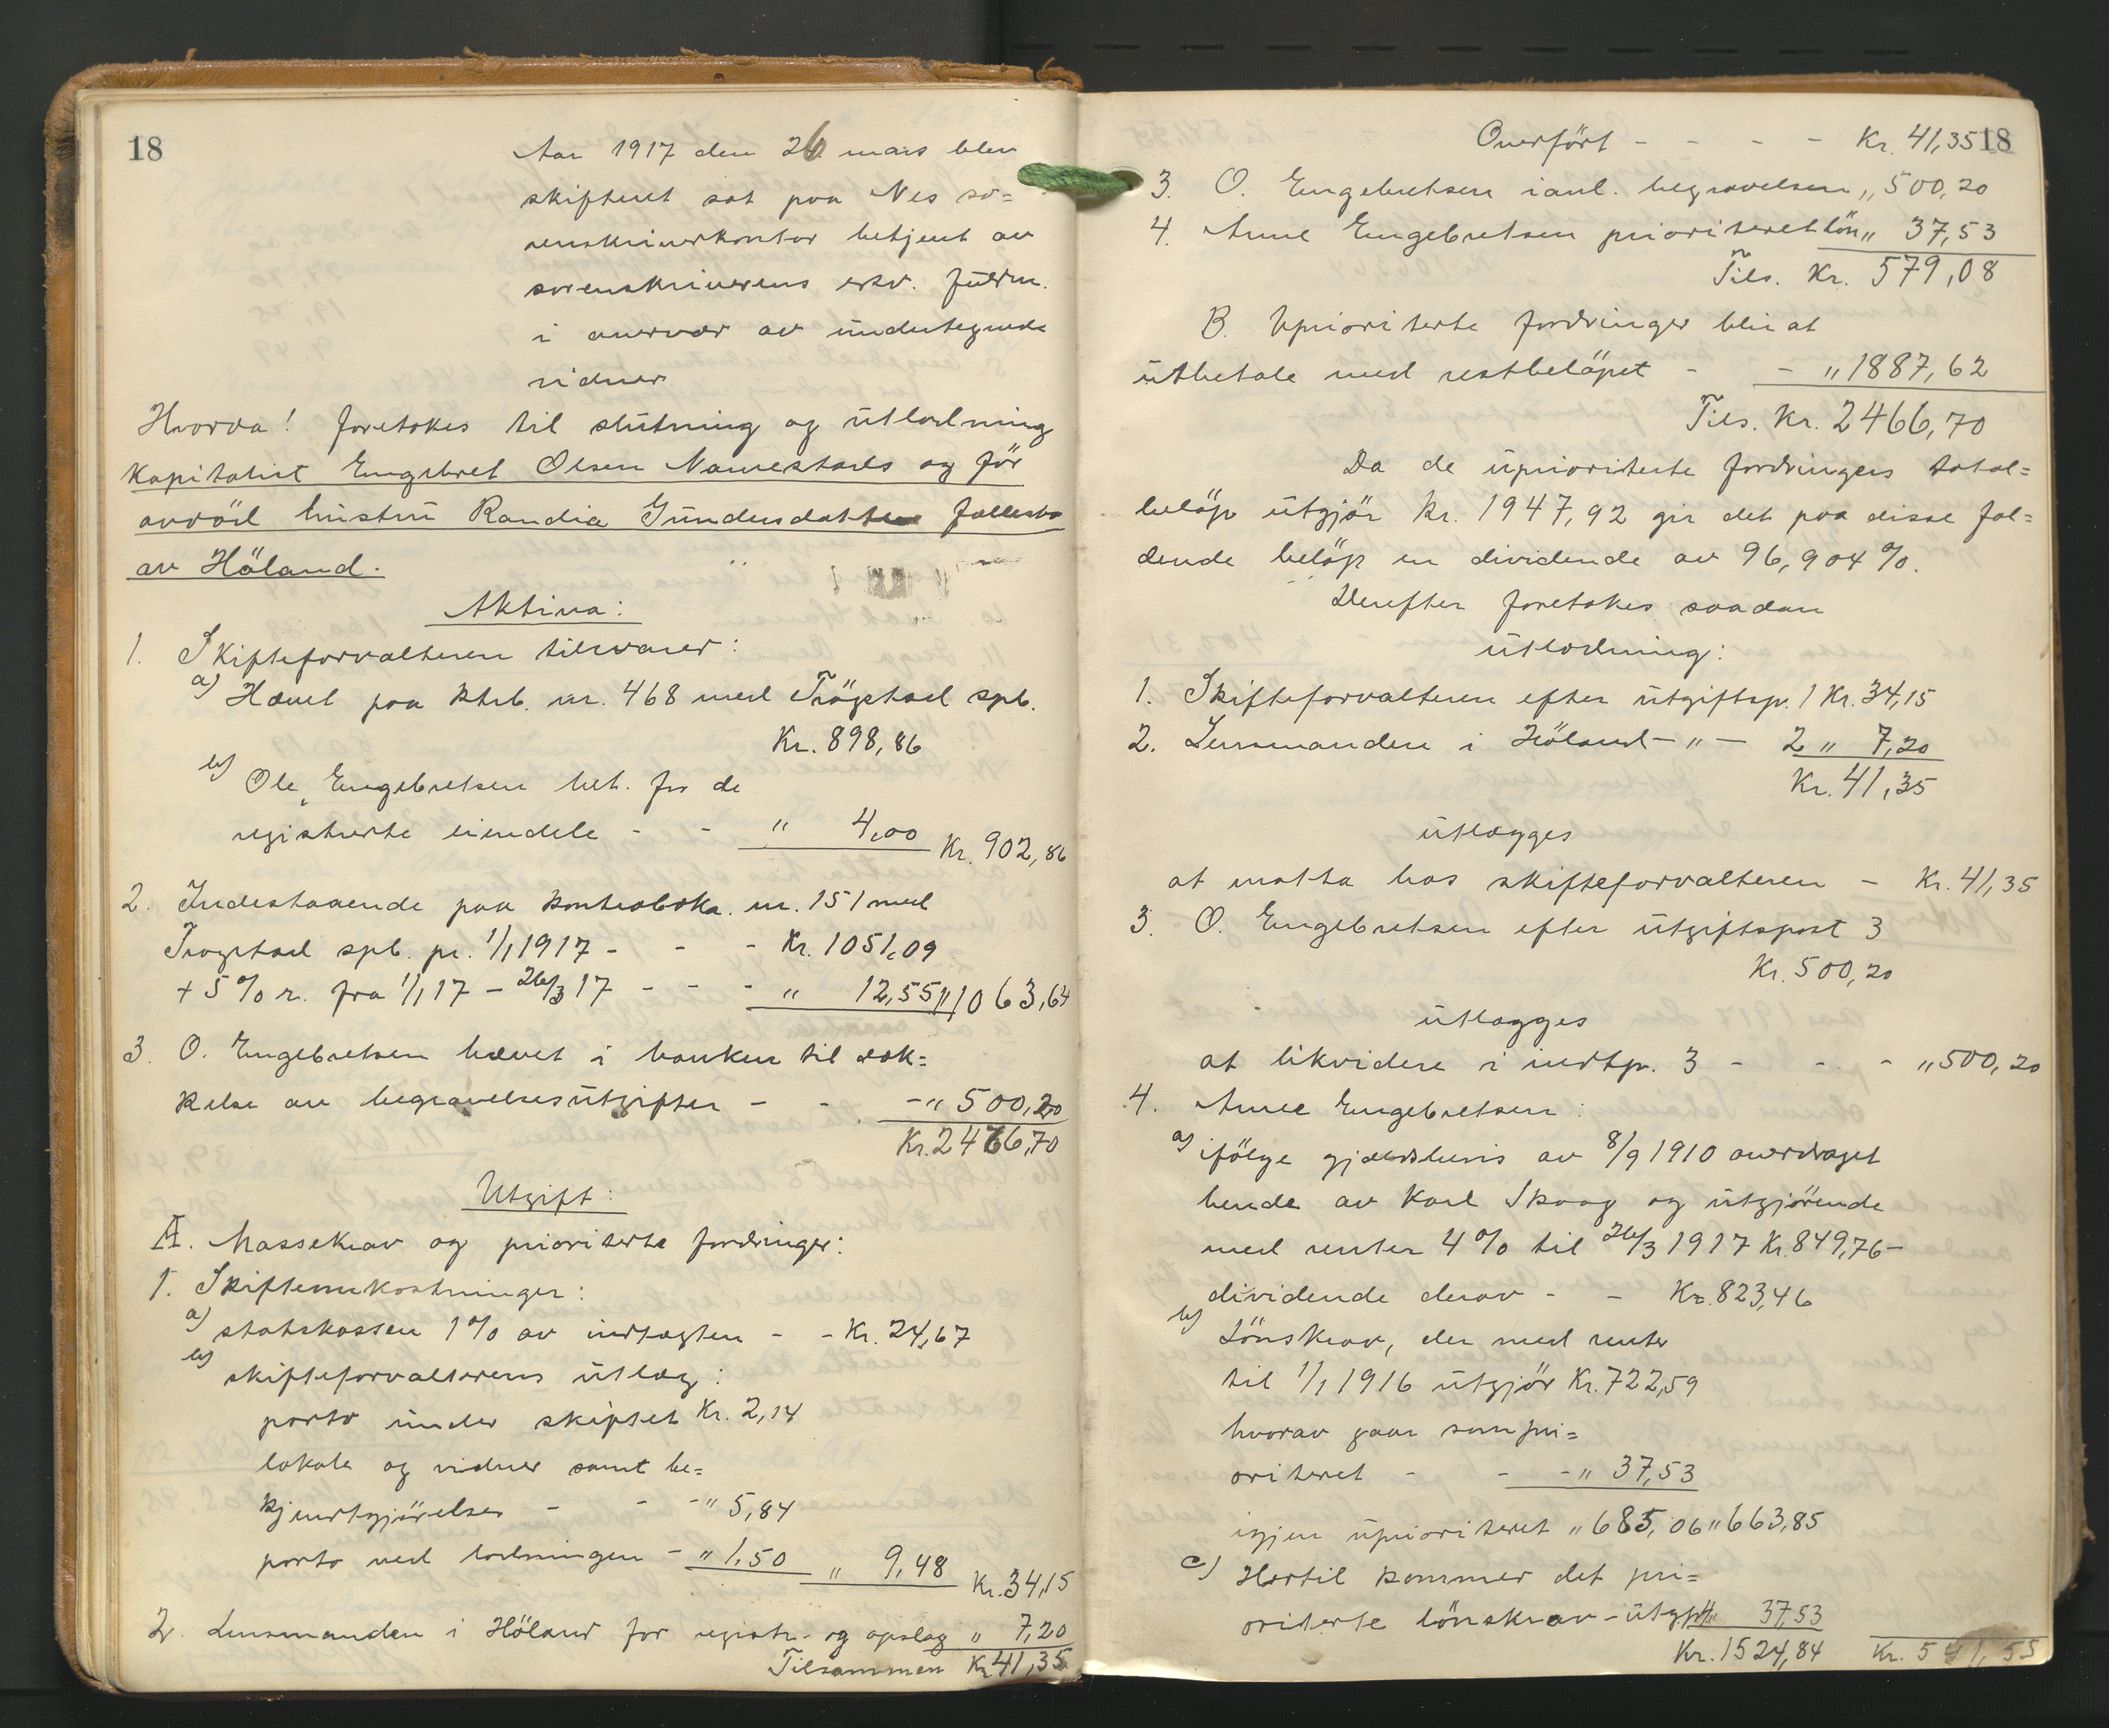 18
Aar 1917 den 26 mars blev
skifteret sat paa Nes so=
renskriverkontor betjent av
sorenskriverens edsv. fuldm.
i overvær av undertegnede
vidner
Hvorda! foretokes til slutning og utlodning
Kapitalist Engebret Olsen Navrestads og før
avdød hustru Randia Gundersdatter fællesbo
av Høland.
Aktiva:
1. Skifteforvalteren tilsvarer:
a) Hævet paa ktrb. nr. 468 med Trögstad spb.
Kr. 898,86
b) Ole Engebretsen bet. for de
registrerte eiendele - - " 4,00 Kr. 902,86
2. Indestaaende paa kontrabok nr. 151 med
Trogstad spb. pr. 1/1 1917 - - - Kr. 1051,09
+ 5 % r. fra 1/1 17 - 26/3 17 - - - " 12,55 " 1063,64
3. O. Engebretsen hævet i banken til dæk=
kelse av begravelsesütgifter - - - " 500,20
Kr. 2466,70
Utgift:
A. Massekrav og prioriterte fordringer:
1. Skifteomkostninger:
a) statskassen 1 % av indtægten - - Kr. 24,67
b) skifteforvalterens ütlæg:
porto ünder skiftet Kr. 2,14
lokale og vidner samt be=
kjendtgjörelser - - - " 5,84
porto ved lodningen - " 1,50 " 9,48 Kr. 34,15
2. Lensmanden i Höland for registr. og opslag " 7,20
Tilsammen Kr. 41,35
18
Overfört - - - - Kr. 41,35
3. O. Engebretsen i anl. begravelsen " 500,20
4. Anne Engebretsen prioriteret lön " 37,53
Tils. Kr. 579,08
B. Uprioriterte fordringer blir at
ütbetale med restbelöpet - - " 1887,62
Tils. Kr. 2466,70
Da de üprioriterte fordringers total=
belöp ütgjör Kr. 1947,92 gir det paa disse fal=
dende belöp en dividende av 96,904 %.
Derefter foretokes saadan
ütlodning:
1. Skifteforvalteren efter ütgiftsp. 1 Kr. 34,15
2. Lensmanden i Höland - " - 2 " 7,20
Kr. 41,35
ütlægges
at motta hos skifteforvalteren - Kr. 41,35
3. O. Engebretsen efter ütgiftspost 3
Kr. 500,20
ütlægges
at likvidere i indtp. 3 - - - " 500,20
4. Anne Engebretsen:
a) ifölge gjældsbevis av 8/9 1910 overdraget
hende av Karl Skaag og ütgjörende
med renter 4 % til 26/3 1917 Kr. 849,76 -
dividende derav - - Kr. 823,46
b) Lönskrav, der med renter
til 1/1 1916 ütgjör Kr. 722,59
hvorav gaar som pri=
oriteret - - - " 37,53
igjen üprioriteret " 685,06 " 663,85
c) Hertil kommer det pri=
oriterte lönskrav - ütgp. 4 " 37,53
Kr. 1524,84 Kr. 541,55